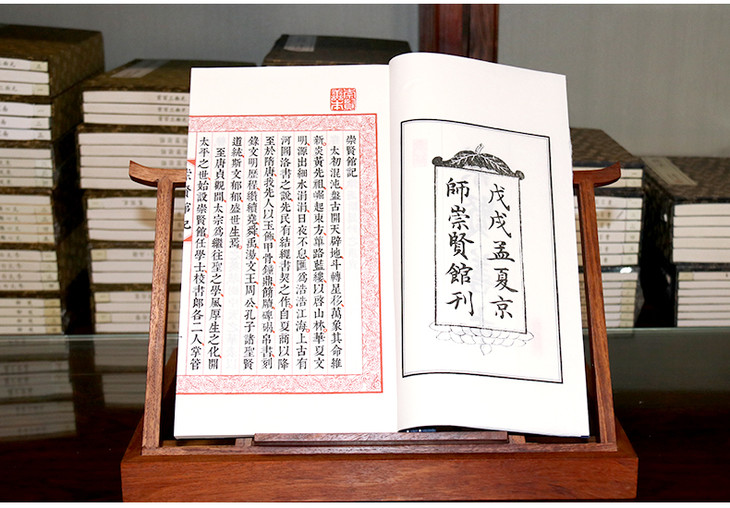 戊戌孟夏京
師崇賢館刊
崇賢館記
太初混沌盤古開天辟地斗轉星移萬象其命維
新炎黃先祖崛起東方篳路藍縷以啓山林華夏文
明源出細水涓涓日夜不息匯爲浩浩江海上古有
河圖洛書之說先民有結繩書契之作自夏商以降
至於隋唐我先人以玉版甲骨鐘鼎簡牘碑碣帛書刻
錄文明歷程續堯舜禹湯文王周公孔子諸聖賢
道統斯文郁郁盛世生焉
至唐貞觀間太宗爲繼往聖之學風厚生之化開
太平之世始設崇賢館任學士校書郎各二人掌管